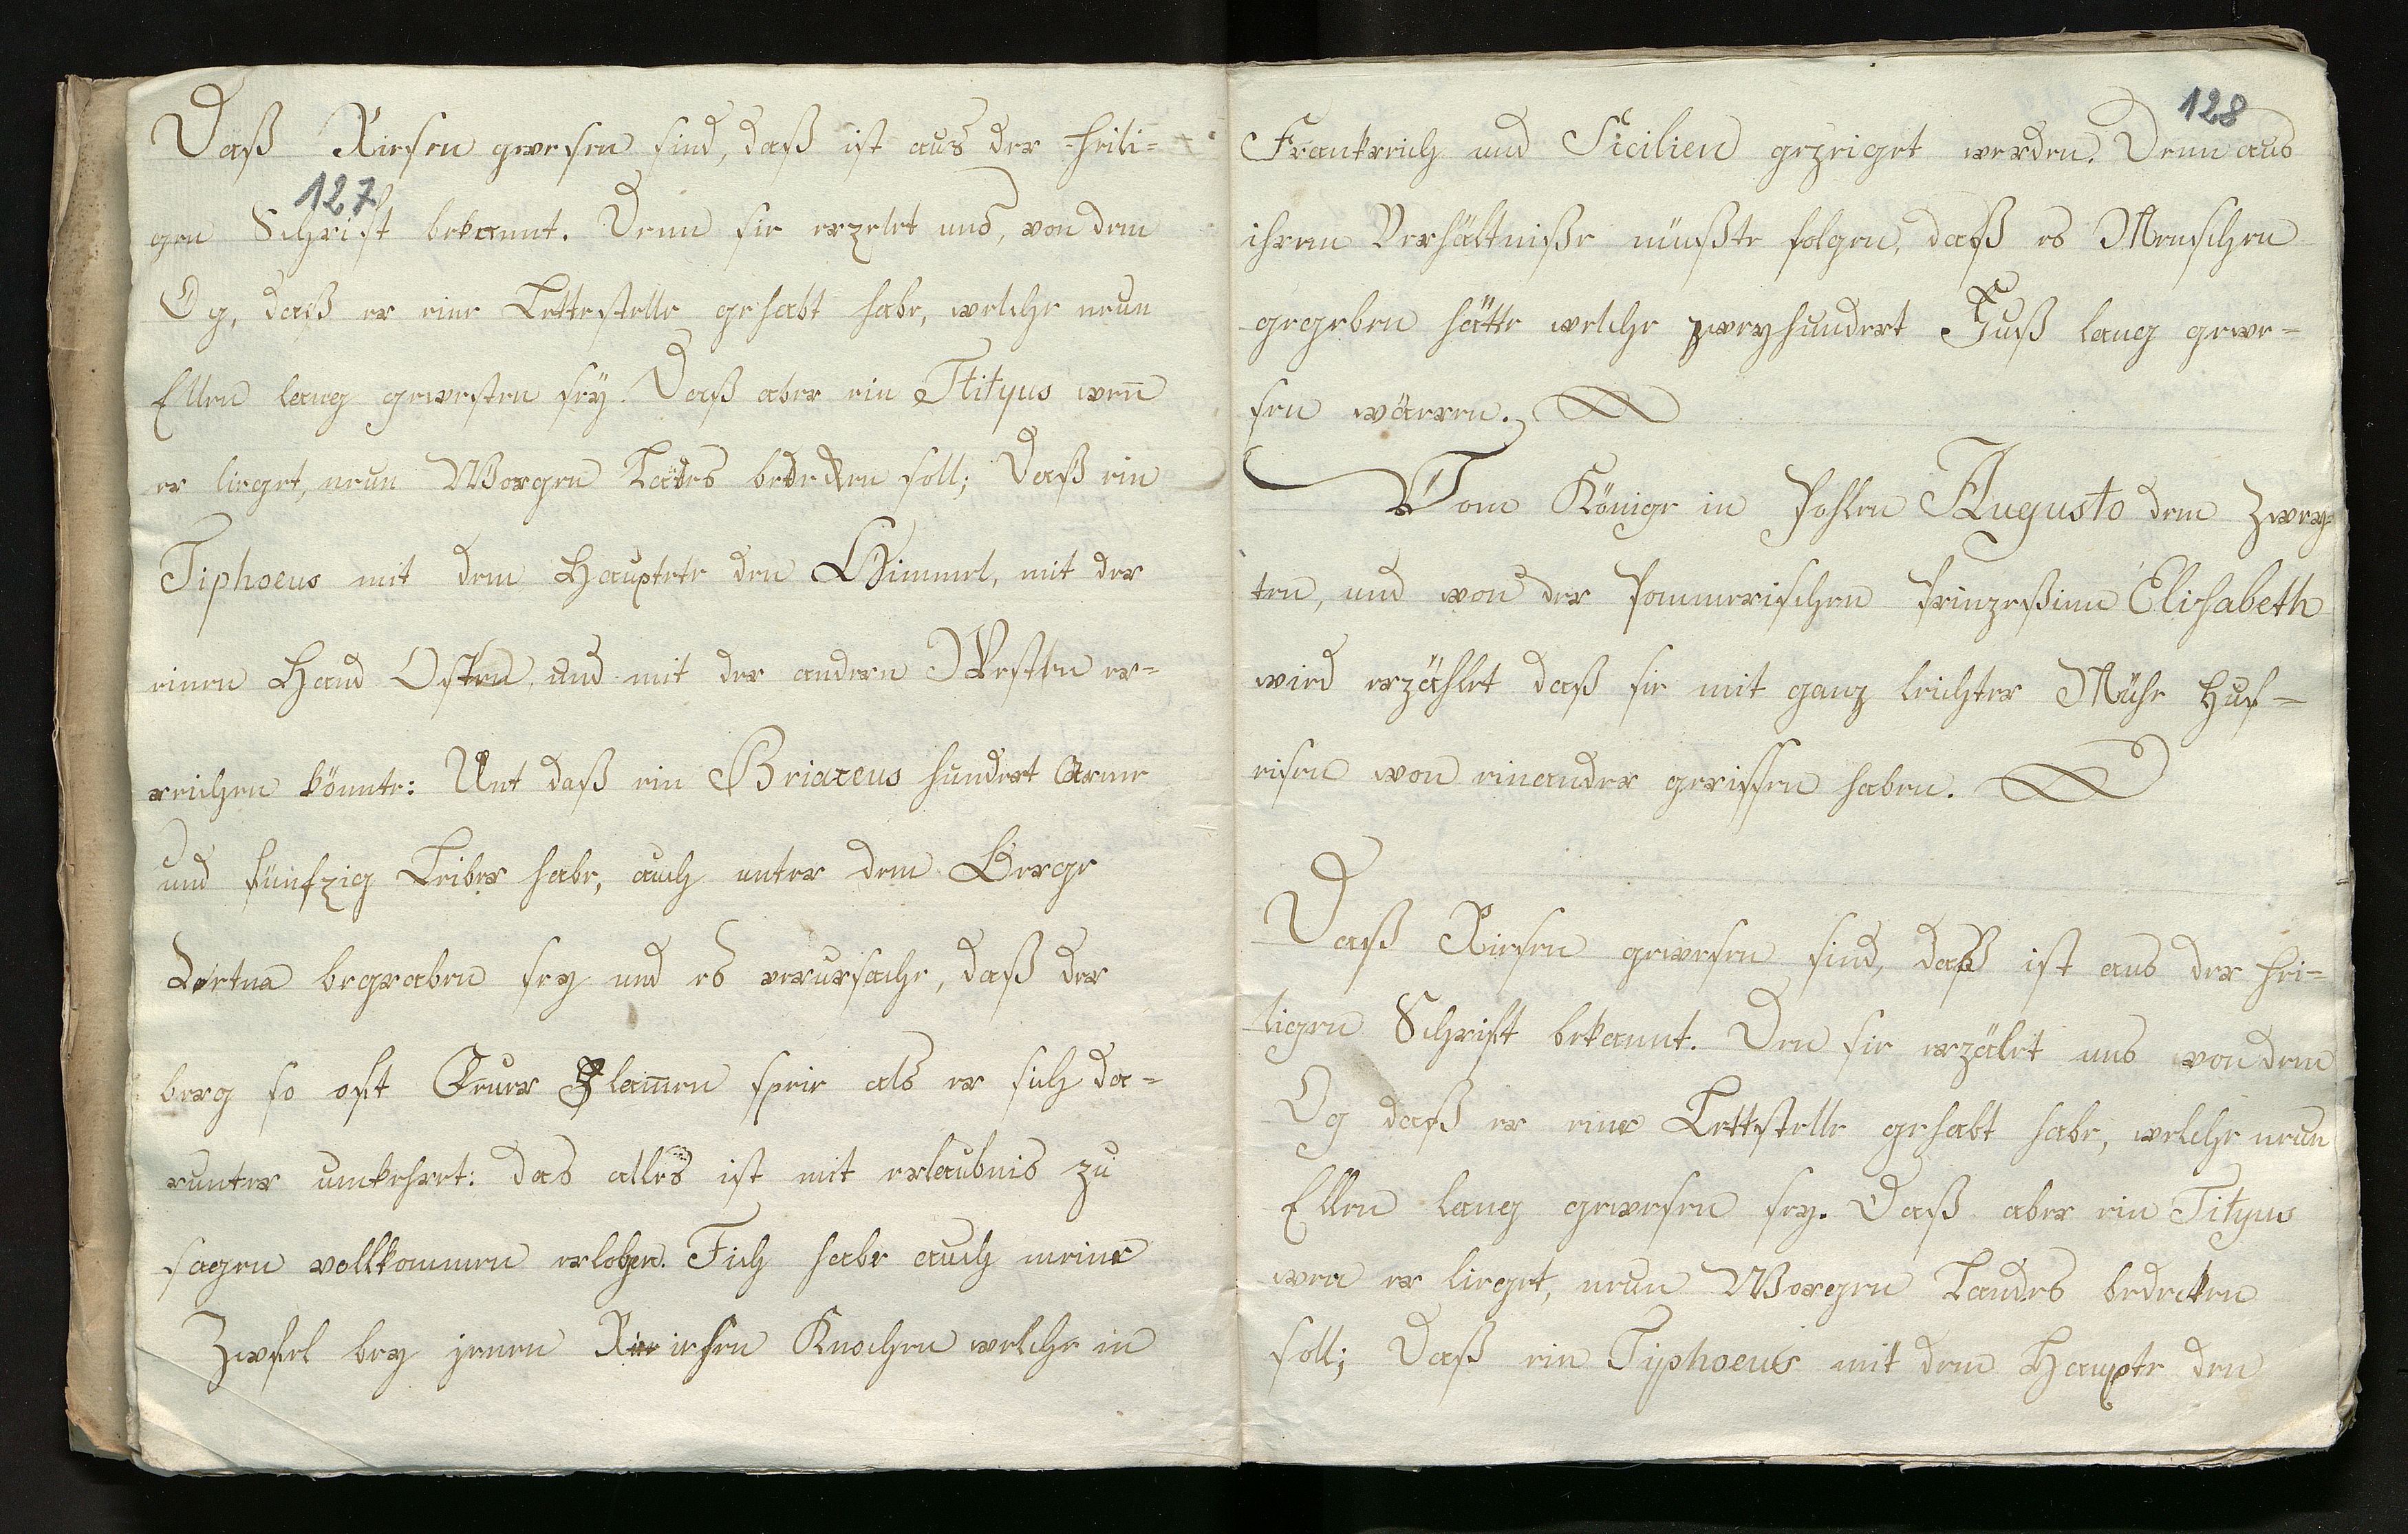 Daß Riesen gewesen sind, daß ist aus der heili=
127
gen Schrift bekannt. Denn sie erzelet uns, von dem
Og, daß er eine Bettestelle gehabt habe, welche neun
Ellen lang gewesten seÿ. Daß aber ein Ttityus wen̄
er lieget, neun Morgen Lades bedecken soll; Daß ein
Tiphoeus mit dem Hauptete den Himmel, mit der
einen Hand Osten, und mit der andern Westen er=
reichen könnte: Unt daß ein Briareus hundert Arme
und fünfzig Leiber habe, auch unter dem Berge
Aertna begraben sey und es verursache, daß der
berg so oft Feuer Flam̄en speie als er sich da=
runter umkehret: das alles ist mit erlaubnis zu
sagen vollkommen erlogen. Jich habe auch meine
Zwefel bey jenen Riesen Knochen welche in
128
Frankreich und Sicilien gezeiget werden. Denn aus
ihrem Verhältniße müußte folgen, daß es Menschen
gegeben hätte welche zweyhundert Fuß lang gewe=
sen wäeren.
Vom Könige in Pohlen Augusto dem Zwey=
ten, und von der Pommerischen Prinzeßinn Elisabeth
wird erzählet daß sie mit ganz leichter Mühe Huf=
eisen von einander gerissen haben.
Daß Riesen gewesen sind, daß ist aus der hei=
ligen Schrift bekannt. Den sie erzälet uns von dem
Og daß er eine Bettstelle gehabt habe, welche neun
Ellen lang gewesen sey. Daß aber ein Tityus
wen er lieget, neun Morgen Landes bedecken
soll; Daß ein Tiphoeus mit dem Haupte den